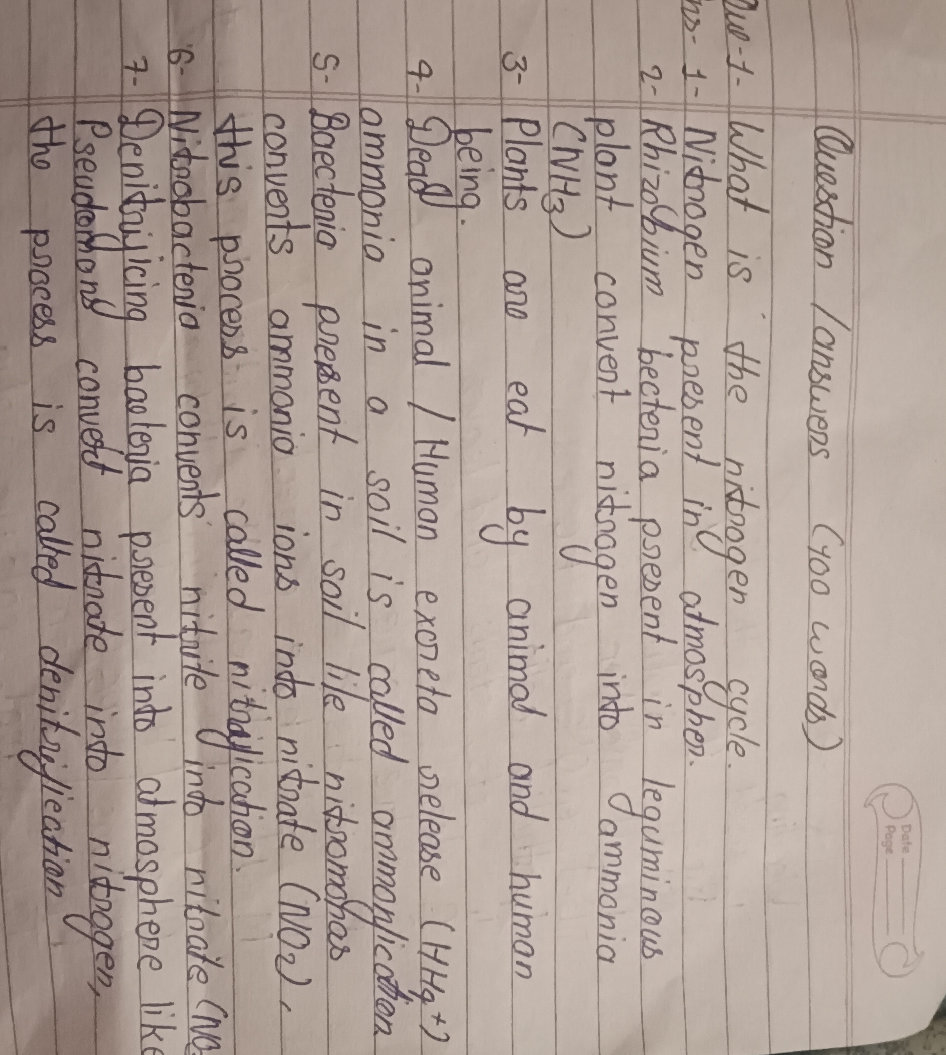 Date
Page
Question / answers (400 words)
Que-1- What is the nitrogen cycle.
ns- 1- Nitrogen present in atmospher.
2- Rhizobium becteria present in leguminous
plant convent nitrogen into ammania
(NH3)
3- Plants are eat by animal and human
being.
4- Dead animal / Human excreta release (HH4+)
ammonia in a soil is called ammonification
5- Baecteria present in soil like nitromonas
convents ammonia ions into nitrate (NO2),
this process is called nitrification.
6- Nitrobacteria convents nitrite into nitrate (NO
7- Denitrificing bacteria present into atmosphere like
Pseudomons convert nitrate into nitrogen,
the process is called denitrification